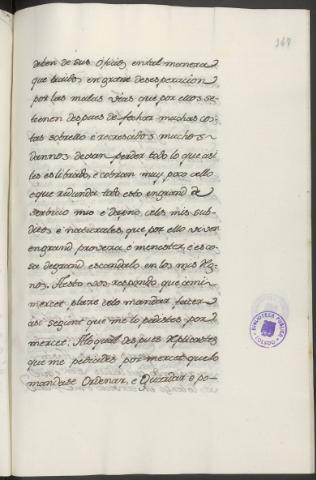 169
deben de sus oficios en tal manera
que traidos en grande desesperacion
por las malas vias que por ellos se
tienen despues de fechar muchas cos
tas sobrello e recresidos muchos
dannos dexan perder todo lo que asi
les es librado, e cobran muy poco dello
e que redunda todo esto en grand de
servicio mio e danno de los mis sub
ditos é naturales, que por ello viven
en grand proveza é menester, e es co
sa de grand escandalo en los mis Rg
nos. A esto vos respondo que a mi
merced plaze delo mandar facer
asi segunt que me lo pedistes por
merced: Alo qual despues replicastes
que me pediades por merced que lo
mandase ordenar, e Guardar o po-
BIBLIOTECA PUBLICA
TOLEDO